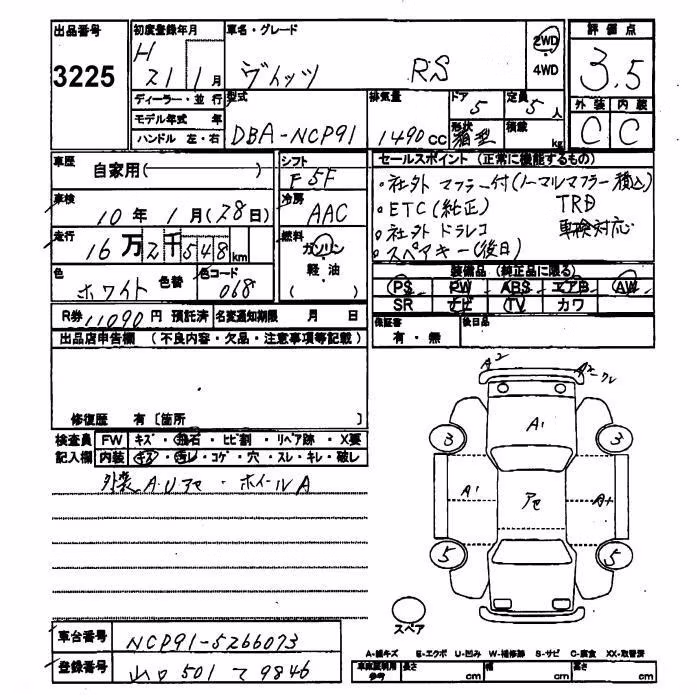 出品番号 初度登録年月 車名・グレード 2WD 評価点
3225 H 21 1月 ヴィッツ RS 4WD 3.5
ディーラー・並行 型式 排気量 ドア 5 定員 5人 外装 内装
モデル年式 年 DBA-NCP91 1490cc 形状 箱型 積載 kg C C
ハンドル 左・右
車歴 自家用( ) シフト F5F セールスポイント (正常に機能するもの)
車検 10年1月(28日) 冷房 AAC ・社外マフラー付(ノーマルマフラー積込)
・ETC(純正) TRD
走行 16万2千548km 燃料 ガソリン ・社外ドラレコ 車検対応
軽・油 ・スペアキー(後日)
( )
色 ホワイト 色替 色コード 068 装備品(純正品に限る)
PS PW ABS エアB AW
SR ナビ TV カワ
R券 11090円 預託済 名変通知期限 月 日 保証書 有・無 後日品
出品店申告欄 (不良内容・欠品・注意事項等記載)
修復歴 有〔箇所 〕
検査員 FW キズ・飛石・ヒビ割・リペア跡・X要
記入欄 内装 キズ・汚レ・コゲ・穴・スレ・キレ・破レ
外装A.Uアセ・ホイールA
A2 A2-クレ
A1
3 3
A1 アセ A+
5 5
スペア
車台番号 NCP91-5266073
登録番号 山口 501 て 9846
A-線キズ E-エクボ U-凹み W-補修跡 S-サビ C-腐食 XX-取替済
車庫証明用参考 長さ cm 幅 cm 高さ cm